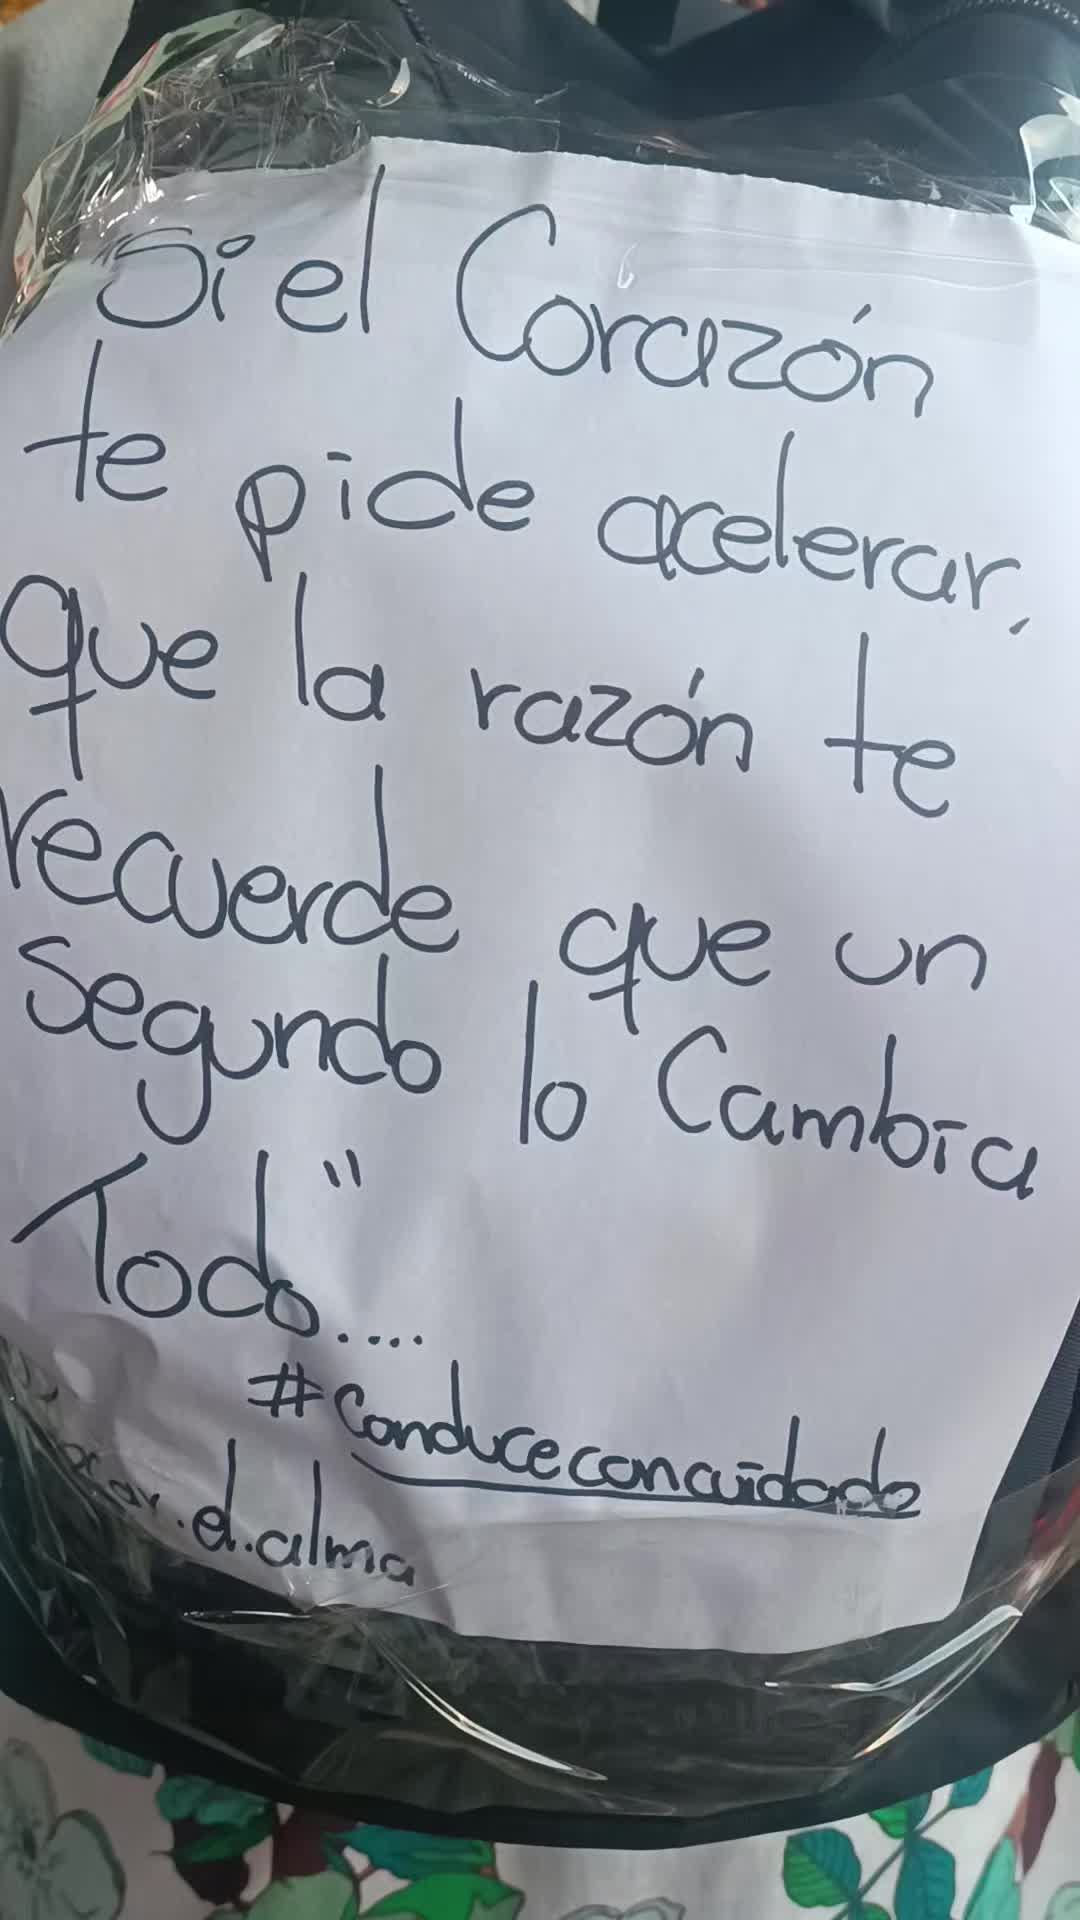 "Si el Corazón
te pide acelerar,
que la razón te
recuerde que un
segundo lo Cambia
Todo"....
#conduceconcuidado
.d.alma